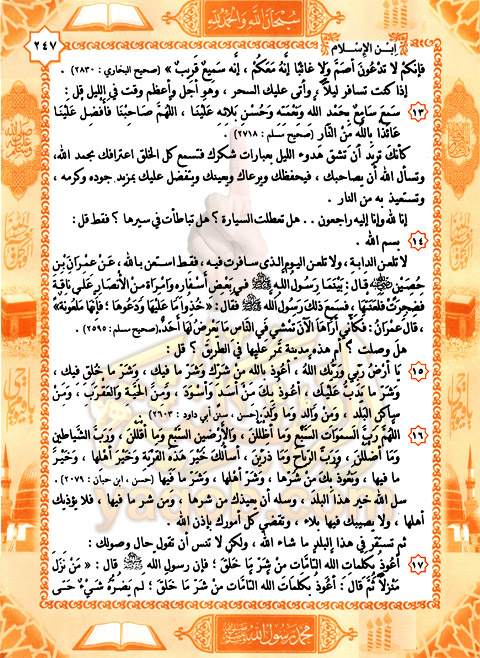 سبحان الله والحمد لله
٢٤٧
ابن الإسلام
فإنكم لا تدعون أصم ولا غائبا إنه معكم ، إنه سميع قريب » (صحيح البخاري : ٢٨٣٠) .
إذا كنت تسافر ليلاً ، وأتى عليك السحر ، وهو أجل وأعظم وقت في الليل قل :
١٣ سَمِعَ سَامِعٌ بِحَمْدِ اللهِ وَنِعْمَتِهِ وَحُسْنِ بَلائِهِ عَلَيْنَا ، اللَّهُمَّ صَاحِبْنَا فَأَفْضِلْ عَلَيْنَا
عَائِذًا بِاللَّهِ مِنَ النَّارِ (صحيح مسلم : ٢٧١٨) .
كأنك تريد أن تشق هدوء الليل بعبارات شكرك فتسمع كل الخلق اعترافك بحمد الله،
وتسأل الله أن يصاحبك ، فيحفظك ويرعاك ويعينك ويتفضل عليك بمزيد جوده وكرمه ،
وتستعيذ به من النار .
إنا لله وإنا إليه راجعون . . هل تعطلت السيارة ؟ هل تباطأت في سيرها ؟ فقط قل :
١٤ بسم الله .
لا تلعن الدابة ، ولا تلعن اليوم الذي سافرت فيه ، فقط استعن بالله ، عَنْ عِمْرَانَ بْنِ
حُصَيْنٍ قَالَ : بَيْنَمَا رَسُولُ اللهِ ﷺ فِي بَعْضِ أَسْفَارِهِ وَامْرَأَةٌ مِنَ الأَنْصَارِ عَلَى نَاقَةٍ
فَضَجِرَتْ فَلَعَنَتْهَا ، فَسَمِعَ ذَلِكَ رَسُولُ اللهِ ﷺ فَقَالَ : «خُذُوا مَا عَلَيْهَا وَدَعُوهَا ، فَإِنَّهَا مَلْعُونَةٌ»
، قَالَ عِمْرَانُ : فَكَأَنِّي أَرَاهَا الآنَ تَمْشِي فِي النَّاسِ مَا يَعْرِضُ لَهَا أَحَدٌ (صحيح مسلم : ٢٥٩٥) .
هل وصلت ؟ أم هذه مدينة تمر عليها في الطريق ؟ قل :
١٥ يَا أَرْضُ رَبِّي وَرَبُّكِ اللهُ ، أَعُوذُ بِاللهِ مِنْ شَرِّكِ وَشَرِّ مَا فِيكِ ، وَشَرِّ مَا خُلِقَ فِيكِ ،
وَشَرِّ مَا يَدِبُّ عَلَيْكِ ، أَعُوذُ بِكَ مِنْ أَسَدٍ وَأَسْوَدَ ، وَمِنَ الحَيَّةِ وَالعَقْرَبِ ، وَمِنْ
سَاكِنِ البَلَدِ ، وَمِنْ وَالِدٍ وَمَا وَلَدَ (حسن ، سنن أبي داود : ٢٦٠٣) .
١٦ اللَّهُمَّ رَبَّ السَّمَوَاتِ السَّبْعِ وَمَا أَظْلَلْنَ ، وَالأَرَضِينَ السَّبْعِ وَمَا أَقْلَلْنَ ، وَرَبَّ الشَّيَاطِينِ
وَمَا أَضْلَلْنَ ، وَرَبَّ الرِّيَاحِ وَمَا ذَرَيْنَ ، أَسْأَلُكَ خَيْرَ هَذِهِ القَرْيَةِ وَخَيْرَ أَهْلِهَا ، وَخَيْرَ
مَا فِيهَا ، وَنَعُوذُ بِكَ مِنْ شَرِّهَا ، وَشَرِّ أَهْلِهَا ، وَشَرِّ مَا فِيهَا (حسن ، ابن حبان : ٢٠٧٩) .
سل الله خير هذا البلد ، وسله أن يعيذك من شرها ، ومن شر ما فيها ، فلا يؤذيك
أهلها ، ولا يصيبك فيها بلاء ، وتقضي كل أمورك بإذن الله .
ثم تستقر في هذا البلد ما شاء الله ، ولكن لا تنس أن تقول حال وصولك :
١٧ أَعُوذُ بِكَلِمَاتِ اللهِ التَّامَّاتِ مِنْ شَرِّ مَا خَلَقَ ، فإن رسول الله ﷺ قال : « مَنْ نَزَلَ
مَنْزِلاً ثُمَّ قَالَ : أَعُوذُ بِكَلِمَاتِ اللهِ التَّامَّاتِ مِنْ شَرِّ مَا خَلَقَ ، لَمْ يَضُرَّهُ شَيْءٌ حَتَّى
محمد رسول الله ﷺ